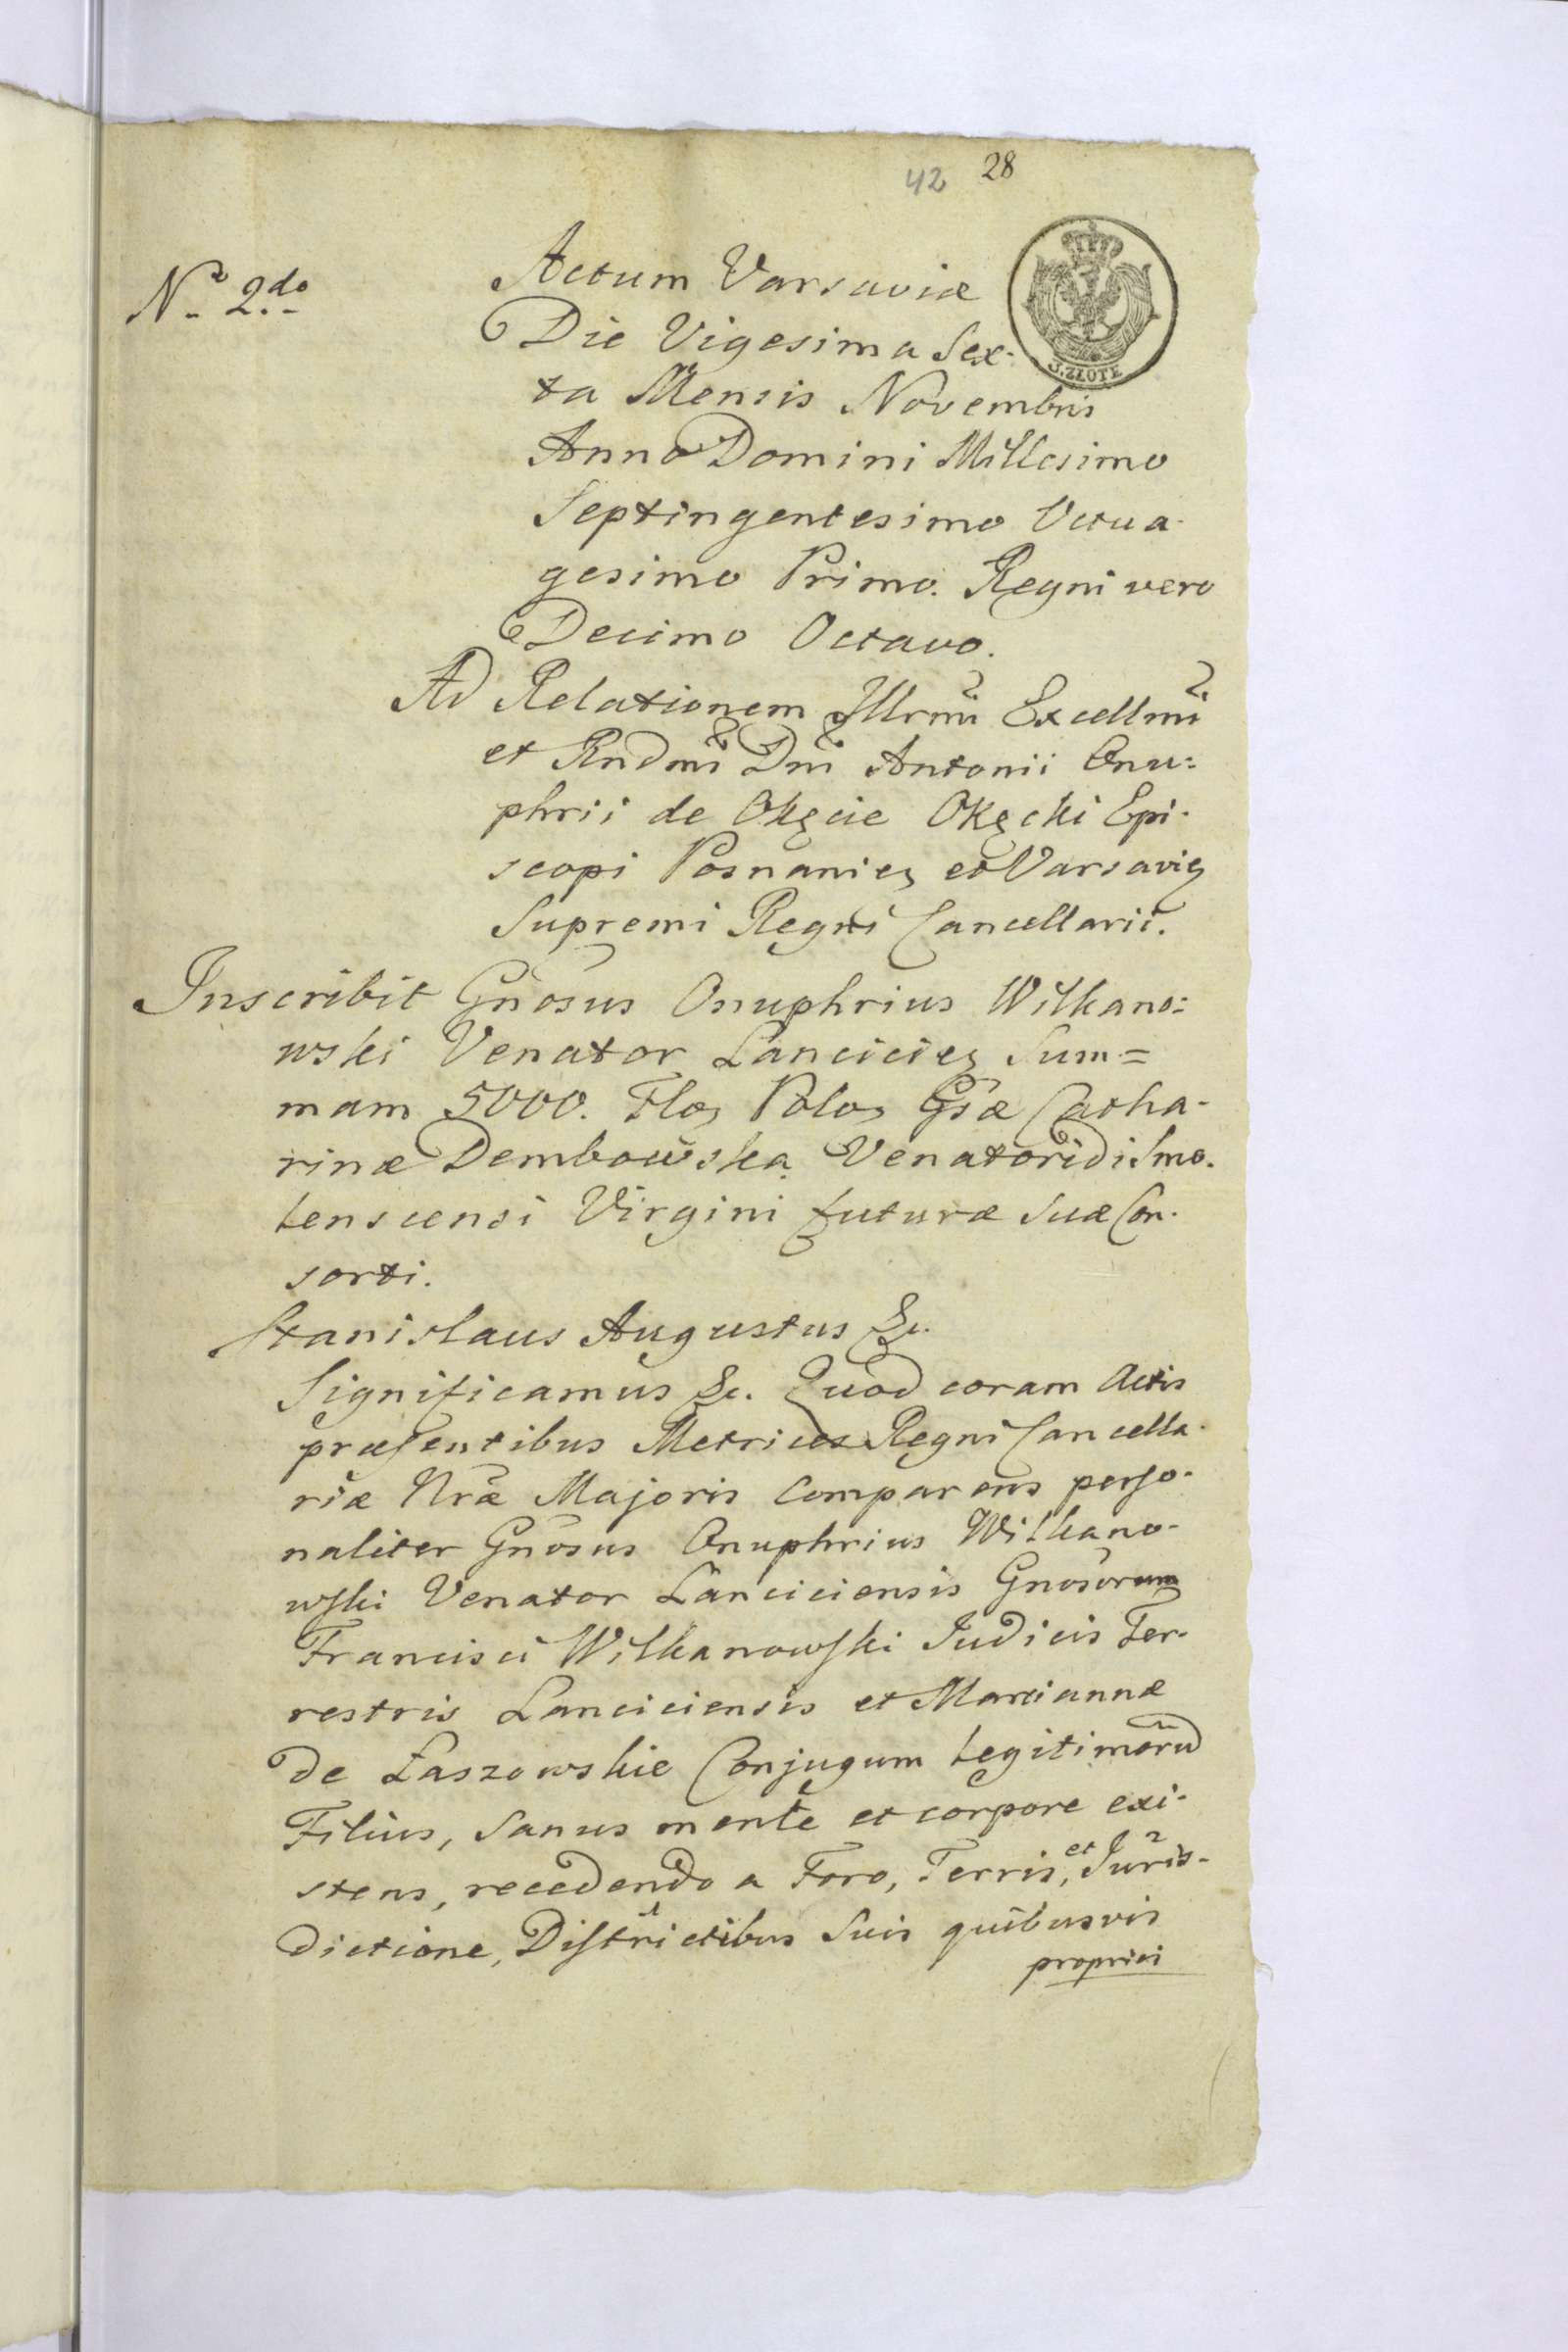 42 28
Nº 2do
3.ZŁOTE
Actum Varsaviæ
Die Vigesima Sex-
ta Mensis Novembris
Anno Domini Millesimo
Septingentesimo Octua-
gesimo Primo. Regni vero
Decimo Octavo.
Ad Relationem Illrmi Excellmi
et Rndmi Dni Antonii Onu=
phrii de Okęcie Okęcki Epi-
scopi Posnanieȝ et Varsavieȝ
Supremi Regni Cancellarii.
Inscribit Gnosus Onuphrius Wilkano=
wski Venator Lancicieȝ Sum=
mam 5000. Floȝ Poloȝ Gsæ Catha-
rinæ Dembowska Venatoridi Smo-
lenscensi Virgini futuræ Suæ Con-
sorti.
Stanislaus Augustus &c.
Significamus &c. Quod coram Actis
præsentibus Metrices Regni Cancella-
riæ Nræ Majoris Comparens perso-
naliter Gnosus Onuphrius Wilkano-
wski Venator Lanciciensis Gnosorum
Francisci Wilkanowski Judicis Ter-
restris Lanciciensis et Mariannæ
de Łaszowskie Conjugum legitimorũ
Filius, Sanus mente et corpore exi-
stens, recedendo a Foro, Terris, et Juris-
dictione, Districtibus Suis quibusvis
proprii